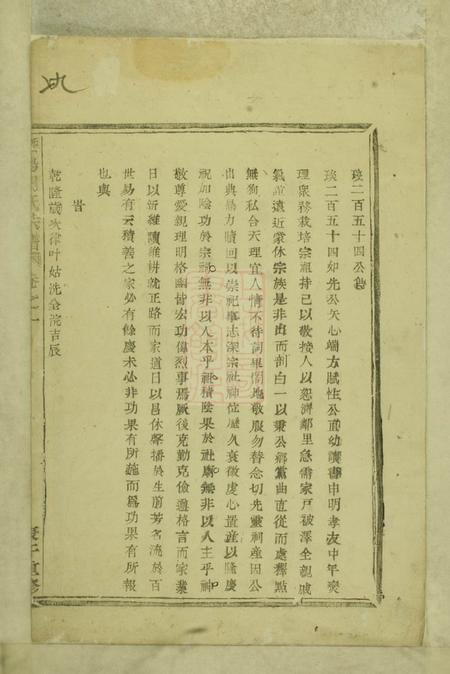 琰二百五十四公傳
琰二百五十四如先公矢心端方賦性公直幼讀書申明孝友中年爕
理衆務栽培宗祖持己以敬接人以恕濟鄰里急需家戸被澤全親戚
氣誼遠近蒙休宗族是非由而剖白一以秉公鄉黨曲直從而處釋點
無狥私合天理宜人情不待詞畢閤地敬服勿替念切先靈祠産因公
出典易力贖回以崇祀事志深宗社神位歴久衰微虔心置産以隆慶
祝加陰功於宗祠無非以人本乎祖積陰果於社廟無非以人主乎神
敬尊愛親理明格幽皆宏功偉烈事焉厥後克勤克儉遵格言而家業
日以祈維讀維耕就正路而家道日以昌休聲播於生前芳名流於百
世易有云積善之家必有餘慶未必非功果有所施而爲功果有所報
也與
旹
乾隆歳次律叶姑洗全浣吉辰
氏宗譜 卷之一